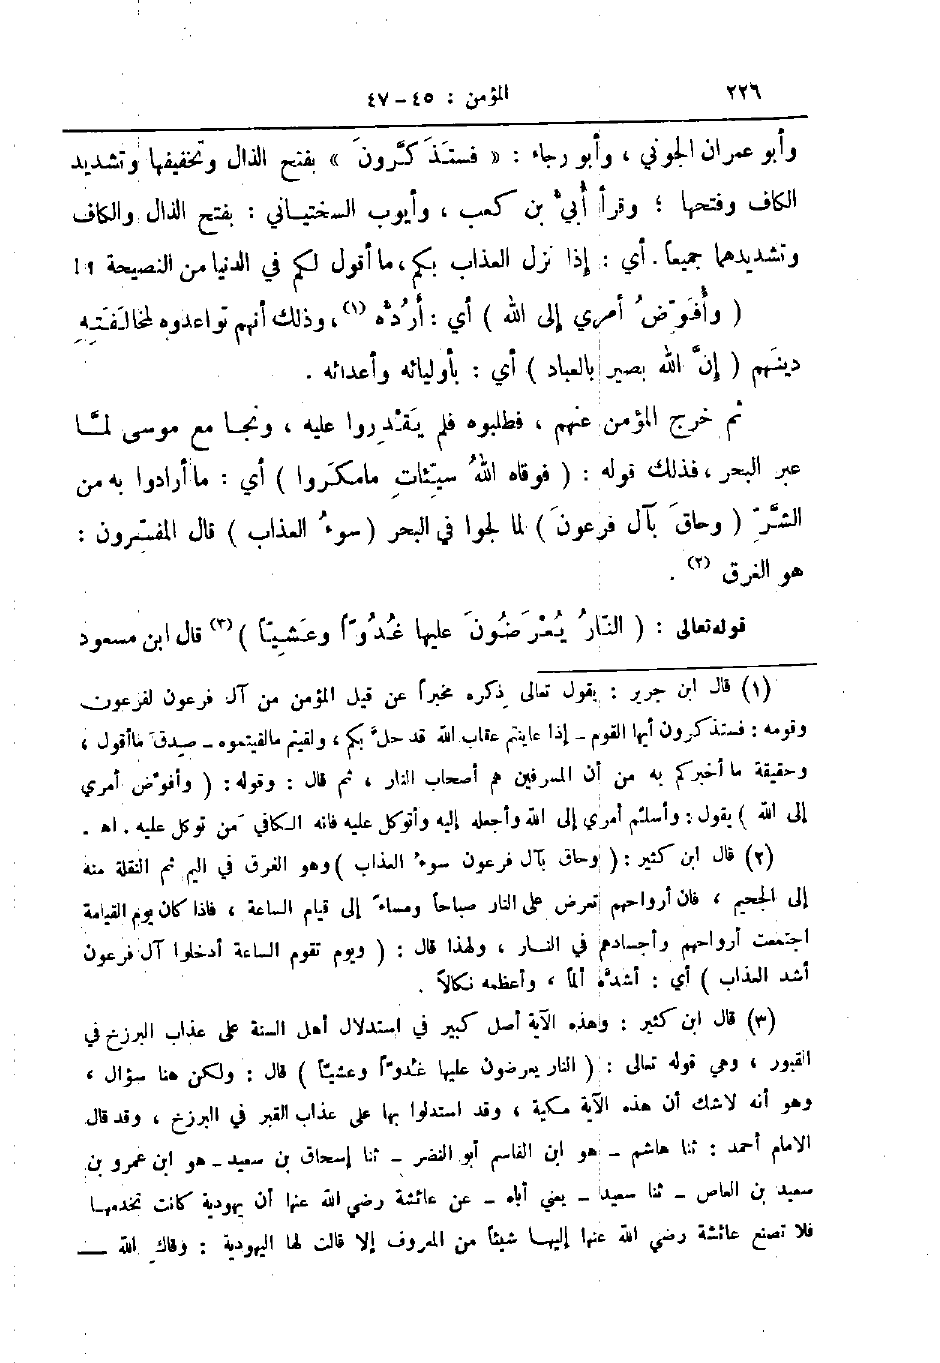 ٢٢٦ المؤمن : ٤٥ - ٤٧
وأبو عمران الجوني ، وأبو رجاء : « فستَذَكَّرونَ » بفتح الذال وتخفيفها وتشديد
الكاف وفتحها ؛ وقرأ أُبيّ بن كعب ، وأيوب السختياني : بفتح الذال والكاف
وتشديدهما جميعاً . أي : إذا نزل العذاب بكم ، ما أقول لكم في الدنيا من النصيحة ؟!
( وأُفَوِّضُ أمري إلى الله ) أي : أَرُدُّه (١) ، وذلك أنهم تواعدوه لمخالَفَتِهِ
دينَهم ( إنَّ الله بصير بالعباد ) أي : بأوليائه وأعدائه .
ثم خرج المؤمن عنهم ، فطلبوه فلم يَقْدِروا عليه ، ونجا مع موسى لمَّا
عبر البحر ، فذلك قوله : ( فوقاه اللهُ سيِّئاتِ مامكَروا ) أي : ما أرادوا به من
الشَّرِّ ( وحاقَ بآل فرعونَ ) لما لجوا في البحر ( سوءُ العذاب ) قال المفسِّرون :
هو الغرق (٢) .
قوله تعالى : ( النّارُ يُعْرَضُونَ عليها غُدُوّاً وعَشِيّاً ) (٣) قال ابن مسعود
(١) قال ابن جرير : يقول تعالى ذكره مخبراً عن قيل المؤمن من آل فرعون لفرعون
وقومه : فستذكرون أيها القوم - إذا عاينتم عقاب الله قد حلَّ بكم ، ولقيتم مالقيتموه - صدقَ ماأقول ،
وحقيقة ما أخبركم به من أن المسرفين هم أصحاب النار ، ثم قال : وقوله : ( وأفوّض أمري
إلى الله ) يقول : وأسلم أمري إلى الله وأجعله إليه وأتوكل عليه فانه الكافي مَن توكل عليه . اهـ .
(٢) قال ابن كثير : ( وحاق بآل فرعون سوءُ العذاب ) وهو الغرق في اليم ثم النقلة منه
إلى الجحيم ، فان أرواحهم تعرض على النار صباحاً ومساءً إلى قيام الساعة ، فاذا كان يوم القيامة
اجتمعت أرواحهم وأجسادهم في النار ، ولهذا قال : ( ويوم تقوم الساعة أدخلوا آل فرعون
أشد العذاب ) أي : أشدَّه ألماً ، وأعظمه نكالاً .
(٣) قال ابن كثير : وهذه الآية أصل كبير في استدلال أهل السنة على عذاب البرزخ في
القبور ، وهي قوله تعالى : ( النار يعرضون عليها غُدوّاً وعشيّاً ) قال : ولكن هنا سؤال ،
وهو أنه لاشك أن هذه الآية مكية ، وقد استدلوا بها على عذاب القبر في البرزخ ، وقد قال
الامام أحمد : ثنا هاشم - هو ابن القاسم أبو النضر - ثنا إسحاق بن سعيد - هو ابن عمرو بن
سعيد بن العاص - ثنا سعيد - يعني أباه - عن عائشة رضي الله عنها أن يهودية كانت تخدمها
فلا تصنع عائشة رضي الله عنها إليها شيئاً من المعروف إلا قالت لها اليهودية : وقاكِ الله —